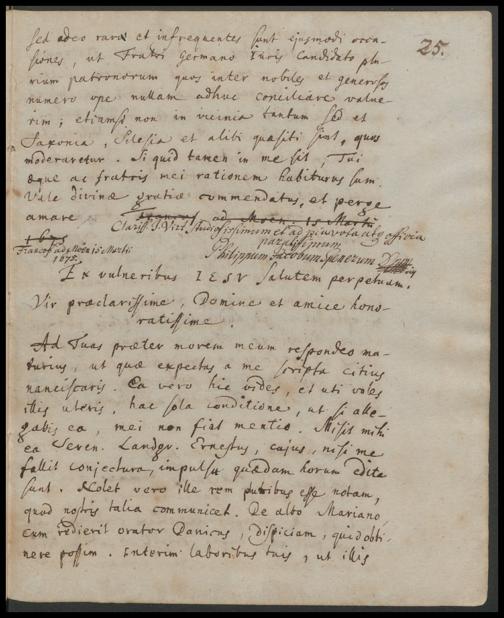 25.
sed adeo rara et infrequentes sunt ejusmodi occa-
siones, ut Fratri Germano Iuris Candidato plu-
rium patronorum quos inter nobiles et generosos
numero ope nullam adhuc conciliare value-
rim; etiamsi non in vicinia tantum sed et
Saxonia, Silesia et alibi quæsiti sint, quos
moderaretur. Si quid tamen in me sit, Tui
æque ac fratris mei rationem habiturus sum.
Vale divinæ gratiæ commendatus, et perge
amare Francof. ad Moen. 15 Martii
1675
Clariss. T. Virt. studiosissimum et ad officia
paratissimum
Francof. ad Moen. 15. Martii
1675.
Philippum Jacobum Spenerum D.
Ex vulneribus IESV salutem perpetuam.
Vir præclarissime, Domine et amice hono-
ratissime.
Ad Tuas præter morem meum respondeo ma-
turius, ut quæ expectas a me scripta citius
nanciscaris. Ea vero hic vides, et uti voles
illis uteris, hac sola conditione, ut si alle-
gabis ea, mei non fiat mentio. Misit mihi
ea Seren. Landgr. Ernestus, cujus, nisi me
fallit conjectura, impulsu quædam horum edita
sunt. Nolet vero ille rem pluribus esse notam,
quod nostris talia communicet. De albo Mariano,
cum redierit orator Danicus, dispiciam, quid obti-
nere possim. Interim laboribus tuis, ut illis